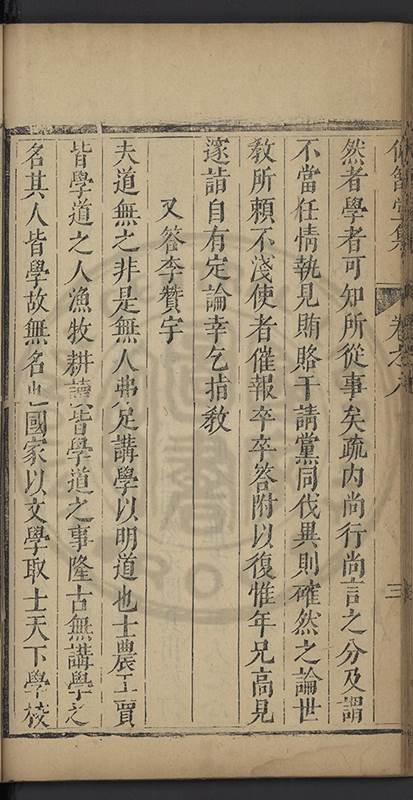 然者學者可知所從事矣疏内尚行尚言之分及謂
不當任情執見賄賂干請黨同伐異則確然之論世
教所賴不淺使者催報卒卒答附以復惟年兄高見
邃詣自有定論幸乞指教
又答李贊宇
夫道無之非是無人弗足講學以明道也士農工賈
皆學道之人漁牧耕讀皆學道之事隆古無講學之
名其人皆學故無名也國家以文學取士天下學校
卷之八
三